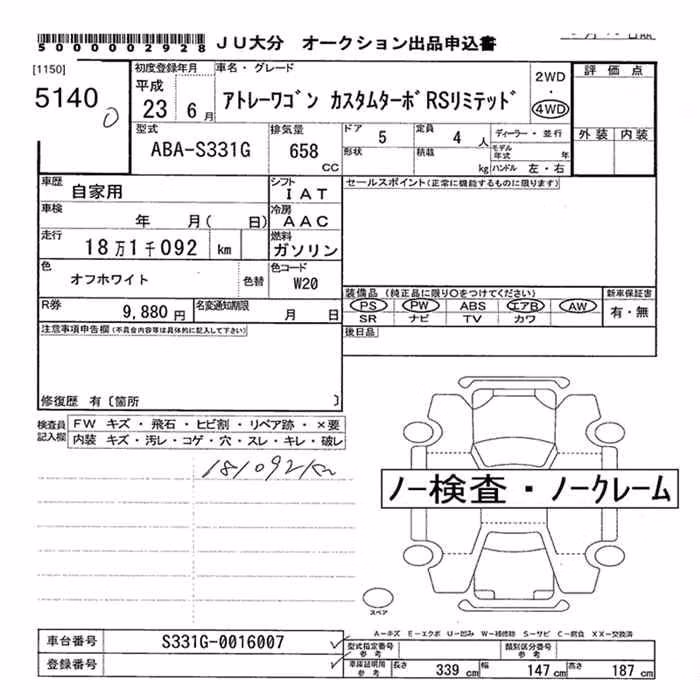 5000002928 JU大分 オークション出品申込書
[1150]
5140
0
初度登録年月
平成
23 年 6 月
車名・グレード
アトレーワゴン カスタムターボRSリミテッド
2WD
・
4WD
評価点
外装 内装
型式
ABA-S331G
排気量
658
CC
ドア 5
定員 4 人
形状
積載 kg
ディーラー・並行
モデル年式 年
ハンドル 左・右
車歴
自家用
シフト
IAT
車検
年 月( 日)
冷房
AAC
走行
18万1千092 km
燃料
ガソリン
色
オフホワイト
色替
色コード
W20
R券
9,880 円
名変通知期限
月 日
セールスポイント(正常に機能するものに限ります)
装備品 (純正品に限り○をつけてください)
PS PW ABS エアB AW
SR ナビ TV カワ
新車保証書
有・無
後日品
注意事項申告欄(不具合内容等は具体的に記入して下さい)
修復歴 有〔箇所 〕
検査員記入欄
FW キズ・飛石・ヒビ割・リペア跡・×要
内装 キズ・汚レ・コゲ・穴・スレ・キレ・破レ
181092km
ノー検査・ノークレーム
スペア
A-キズ E-エクボ U-凹み W-補修跡 S-サビ C-腐食 XX-交換済
車台番号 S331G-0016007
登録番号
型式指定番号
参考
類別区分番号
参考
車庫証明用
参考
長さ 339 cm 幅 147 cm 高さ 187 cm